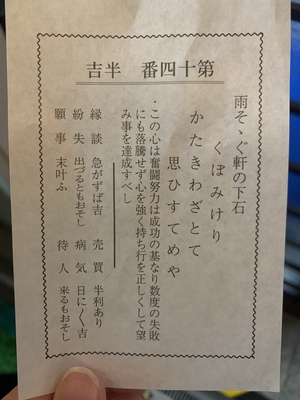 第十四番　半吉
雨そゝぐ軒の下石
くぼみけり
かたきわざとて
思ひすてめや
・この心は奮闘努力は成功の基なり数度の失敗
にも落騰せず心を強く持ち行を正しくして望
み事を達成すべし
縁談　急がずば吉　売買　半利あり
紛失　出づるともおそし　病気　日に〱吉
願事　末叶ふ　待人　来るもおそし